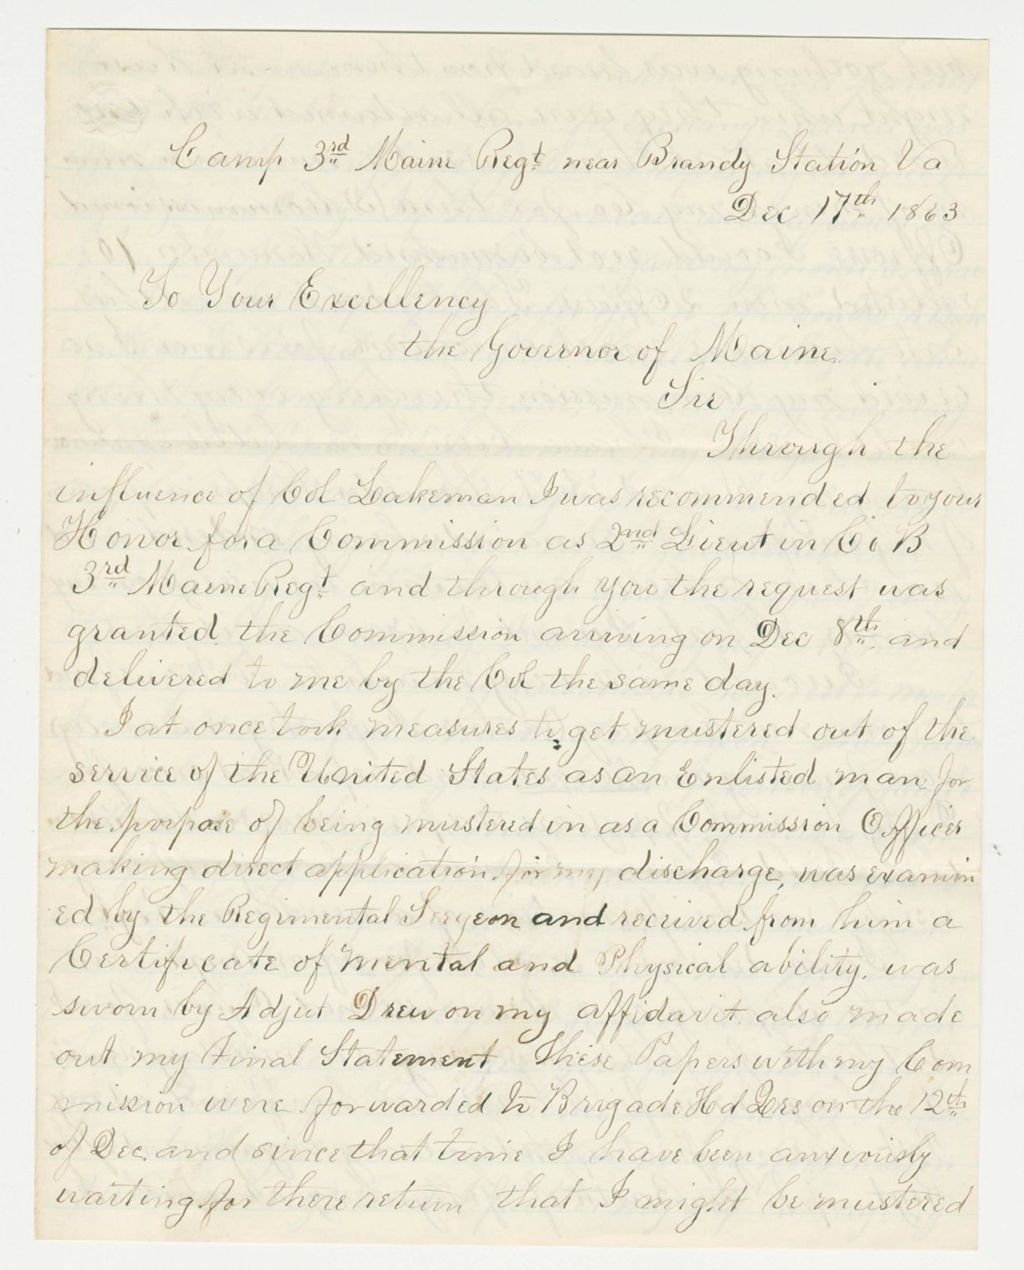 Camp 3rd Maine Regt near Brandy Station Va
Dec 17th 1863
To Your Excellency
the Governor of Maine.
Sir
Through the
influence of Col Lakeman I was recommended to your
Honor for a Commission as 2nd Lieut in Co B
3rd Maine Regt and through you the request was
granted. the Commission arriving on Dec 8th. and
delivered to me by the Col the same day.
I at once took measures to get mustered out of the
service of the United States as an Enlisted man for
the porpose of being mustered in as a Commission Officer
making direct application for my discharge, was examin
ed by the Regimental Surgeon and received from him a
Certificate of mental and Physical ability. was
sworn by Adjut Drew on my affidavit also made
out my Final Statement These Papers with my Com
mission were forwarded to Brigade Hd Qrs on the 12th
of Dec. and since that time I have been anxiously
waiting for there return that I might be mustered